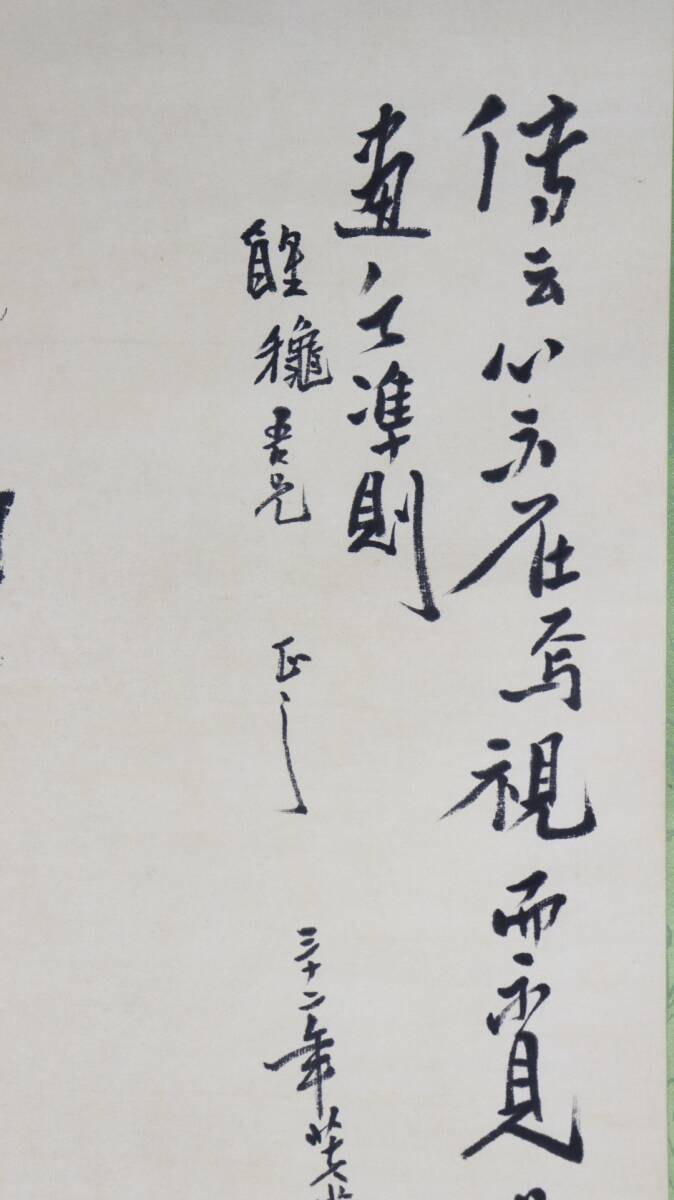 傳云心不在焉視而不見
畫之準則
醒龝吾兄 正之
三十二年